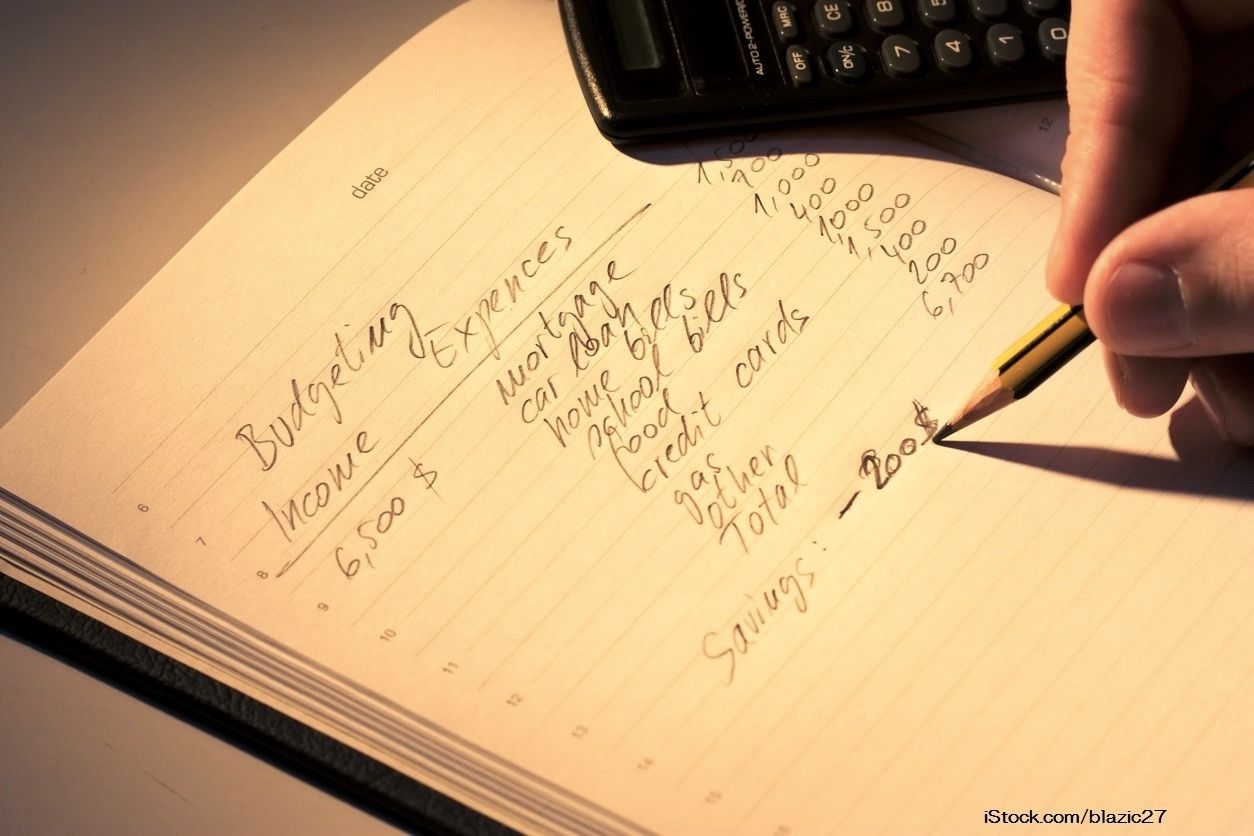 AUTO 2-POWER
MRC CE 8 5
OFF ON/C 7 4 1 0
date
12
Budgeting
Income Expences
6,500 $
mortgage 1,500
car loan 700
home bills 1,000
school bills 400
food 1,000
credit cards 1,500
gas 400
other 200
Total 6,700
Savings: - 200 $
6
7
8
9
10
11
12
13
14
15
iStock.com/blazic27